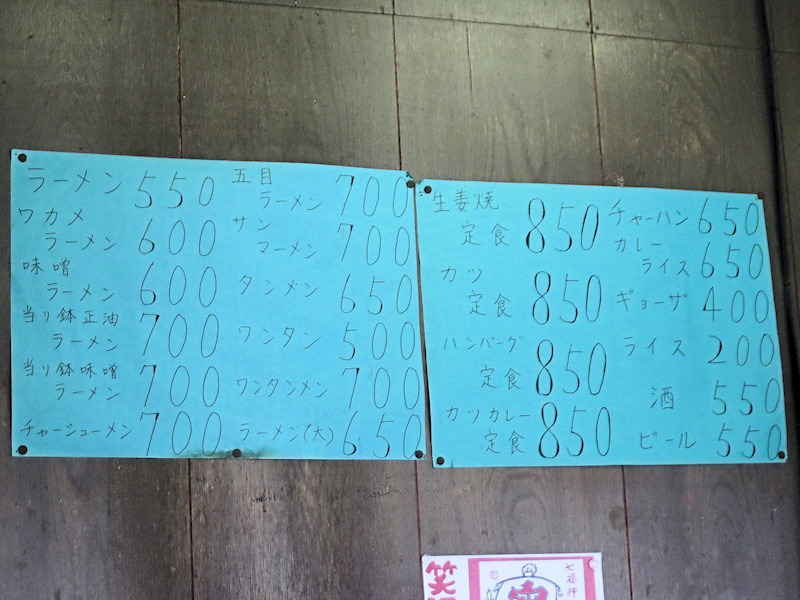 ラーメン 550
ワカメ
ラーメン 600
味噌
ラーメン 600
当り鉢正油
ラーメン 700
当り鉢味噌
ラーメン 700
チャーシューメン 700
五目
ラーメン 700
サン
マーメン 700
タンメン 650
ワンタン 500
ワンタンメン 700
ラーメン(大) 650
生姜焼
定食 850
カツ
定食 850
ハンバーグ
定食 850
カツカレー
定食 850
チャーハン 650
カレー
ライス 650
ギョーザ 400
ライス 200
酒 550
ビール 550
笑
七福神